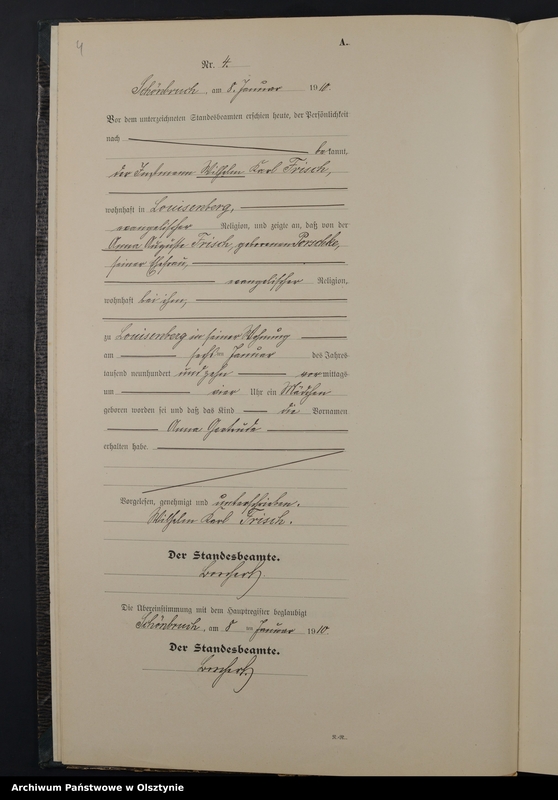 4
A.
Nr. 4.
Schönbruch, am 8. Januar 1910.
Vor dem unterzeichneten Standesbeamten erschien heute, der Persönlichkeit
nach
bekannt,
der Instmann Wilhelm Karl Frisch,
wohnhaft in Louisenberg,
evangelischer Religion, und zeigte an, daß von der
Anna Auguste Frisch, geborenen Porschke,
seiner Ehefrau,
evangelischer Religion,
wohnhaft bei ihm,
zu Louisenberg in seiner Wohnung
am sechsten Januar des Jahres
tausend neunhundert und zehn vormittags
um vier Uhr ein Mädchen
geboren worden sei und daß das Kind die Vornamen
Anna Gertrude
erhalten habe.
Vorgelesen, genehmigt und unterschrieben.
Wilhelm Karl Frisch.
Der Standesbeamte.
Borchert
Die Übereinstimmung mit dem Hauptregister beglaubigt
Schönbruch, am 8ten Januar 1910.
Der Standesbeamte.
Borchert
Archiwum Państwowe w Olsztynie